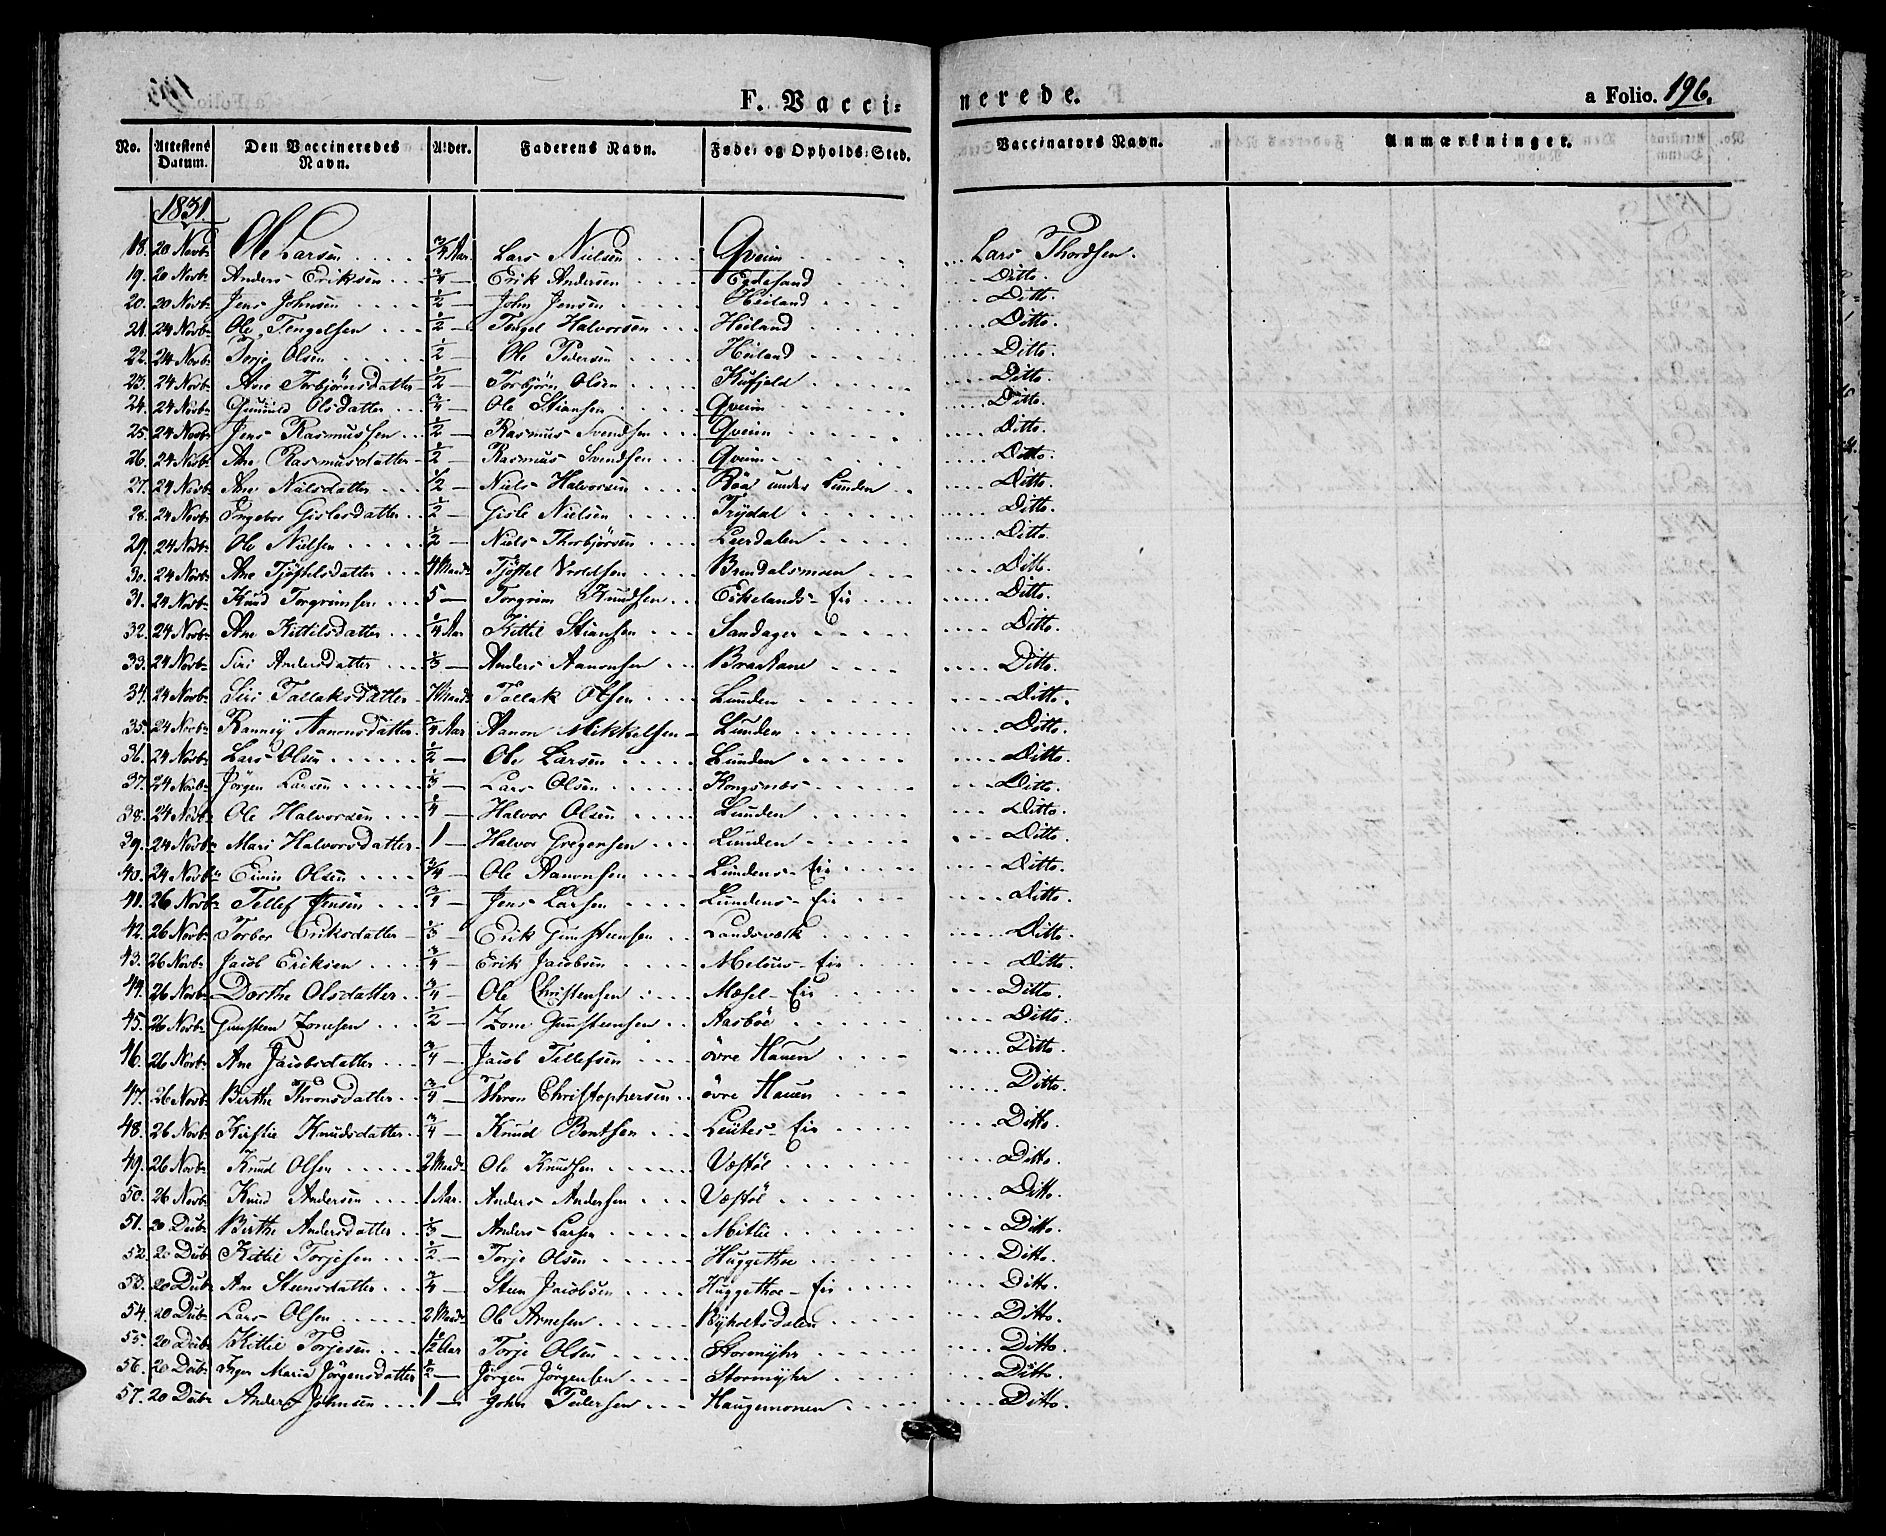 F. Vaccinerede. a Folio. 196.
No. Attestens Datum. Den Vaccineredes Navn. Alder. Faderens Navn. Føde- og Opholds-Sted. Vaccinators Navn. Anmærkninger.
1831
18. 20 Novbr Ole Larsen 3/4 Aar Lars Nielsen Qveim Lars Thordsen.
19. 20 Novbr Anders Eriksen 3/4 — Erik Andersen Egdesand Ditto.
20. 20 Novbr Jens Johnsen 1/2 — John Jensen Heiland Ditto.
21. 24 Novbr Ole Tengelsen 1/2 — Tengel Halvorsen Heiland Ditto.
22. 24 Novbr Torje Olsen 1/2 — Ole Pedersen Heiland Ditto.
23. 24 Novbr Ane Torbjörnsdatter 1/2 — Torbjörn Olsen Kufjeld Ditto.
24. 24 Novbr Gunnild Olsdatter 3/4 — Ole Stiansen Qveim Ditto.
25. 24 Novbr Jens Rasmussen 1/2 — Rasmus Svendsen Qveim Ditto.
26. 24 Novbr Ane Rasmusdatter 1/2 — Rasmus Svendsen Qveim Ditto.
27. 24 Novbr Ane Nielsdatter 1/2 — Niels Halvorsen Röed under Lunden Ditto.
28. 24 Novbr Ingebor Gislesdatter 1/2 — Gisle Nielsen Trydal Ditto.
29. 24 Novbr Ole Nielsen 1/2 — Niels Thorbjörsen Leerdalen Ditto.
30. 24 Novbr Ane Tjöstelsdatter 4 Maandr Tjöstel Vroldsen Brendalsmoen Ditto.
31. 24 Novbr Knud Torgrimsen 5 — Torgrim Knudsen Eikelands-Eie Ditto.
32. 24 Novbr Ane Kittilsdatter 1/4 Aar Kittil Stiansen Sandager Ditto.
33. 24 Novbr Siri Andersdatter 1/3 — Anders Aanonsen Braskane Ditto.
34. 24 Novbr Siri Tallaksdatter 7 Maandr Tallak Olsen Lunden Ditto.
35. 24 Novbr Ranney Aanonsdatter 3/4 Aar Aanon Mikkelsen Lunden Ditto.
36. 24 Novbr Lars Olsen 1/2 — Ole Larsen Lunden Ditto.
37. 24 Novbr Jörgen Larsen 1/3 — Lars Olsen Kongsnæs Ditto.
38. 24 Novbr Ole Halvorsen 1/4 — Halvor Olsen Lunden Ditto.
39. 24 Novbr Mari Halvorsdatter 1 — Halvor Gregersen Lunden Ditto.
40. 24 Novbr Olsen 3/4 — Ole Aanonsen Lundens-Eie Ditto.
41. 26 Novbr Tellef Jensen 3/4 — Jens Larsen Lundens-Eie Ditto.
42. 26 Novbr Torber Eriksdatter 1/3 — Erik Gunsteensen Landsværk Ditto.
43. 26 Novbr Jacob Eriksen 3/4 — Erik Jacobsen Melaas-Eie Ditto.
44. 26 Novbr Dorthe Olsdatter 3/4 — Ole Christensen Mæsel-Eie Ditto.
45. 26 Novbr Gunsteen Zonesen 1/2 — Zone Gunsteensen Aasböe Ditto.
46. 26 Novbr Ane Jacobsdatter 3/4 — Jacob Tellefsen övre Hauen Ditto.
47. 26 Novbr Birthe Thronsdatter 3/4 — Thron Christophersen övre Hauen Ditto.
48. 26 Novbr Kirstie Knudsdatter 3/4 — Knud Bentsen Leütes-Eie Ditto.
49. 26 Novbr Knud Olsen 2 Maandr Ole Knudsen Væstöl Ditto.
50. 26 Novbr Knud Andersen 1 Aar. Anders Andersen Væstöl Ditto.
51. 20 Decbr Birthe Andersdatter 1/3 — Anders Larsen Mitlie Ditto.
52. 20 Decbr Kittil Torjesen 1/2 — Torje Olsen Huggethoe Ditto.
53. 20 Decbr Ane Steensdatter 3/4 — Steen Jacobsen Huggethoe-Eie Ditto.
54. 20 Decbr Lars Olsen 2 Maandr Ole Arnesen Byholtsdalen Ditto.
55. 20 Decbr Kittil Torjesen 1/2 Aar Torje Olsen Stormyhr Ditto.
56. 20 Decbr Inger Maria Jörgensdatter 1/2 — Jörgen Jörgensen Stormyhr Ditto.
57. 20 Decbr Anders Johnsen 1 — John Pedersen Haugemonen Ditto.